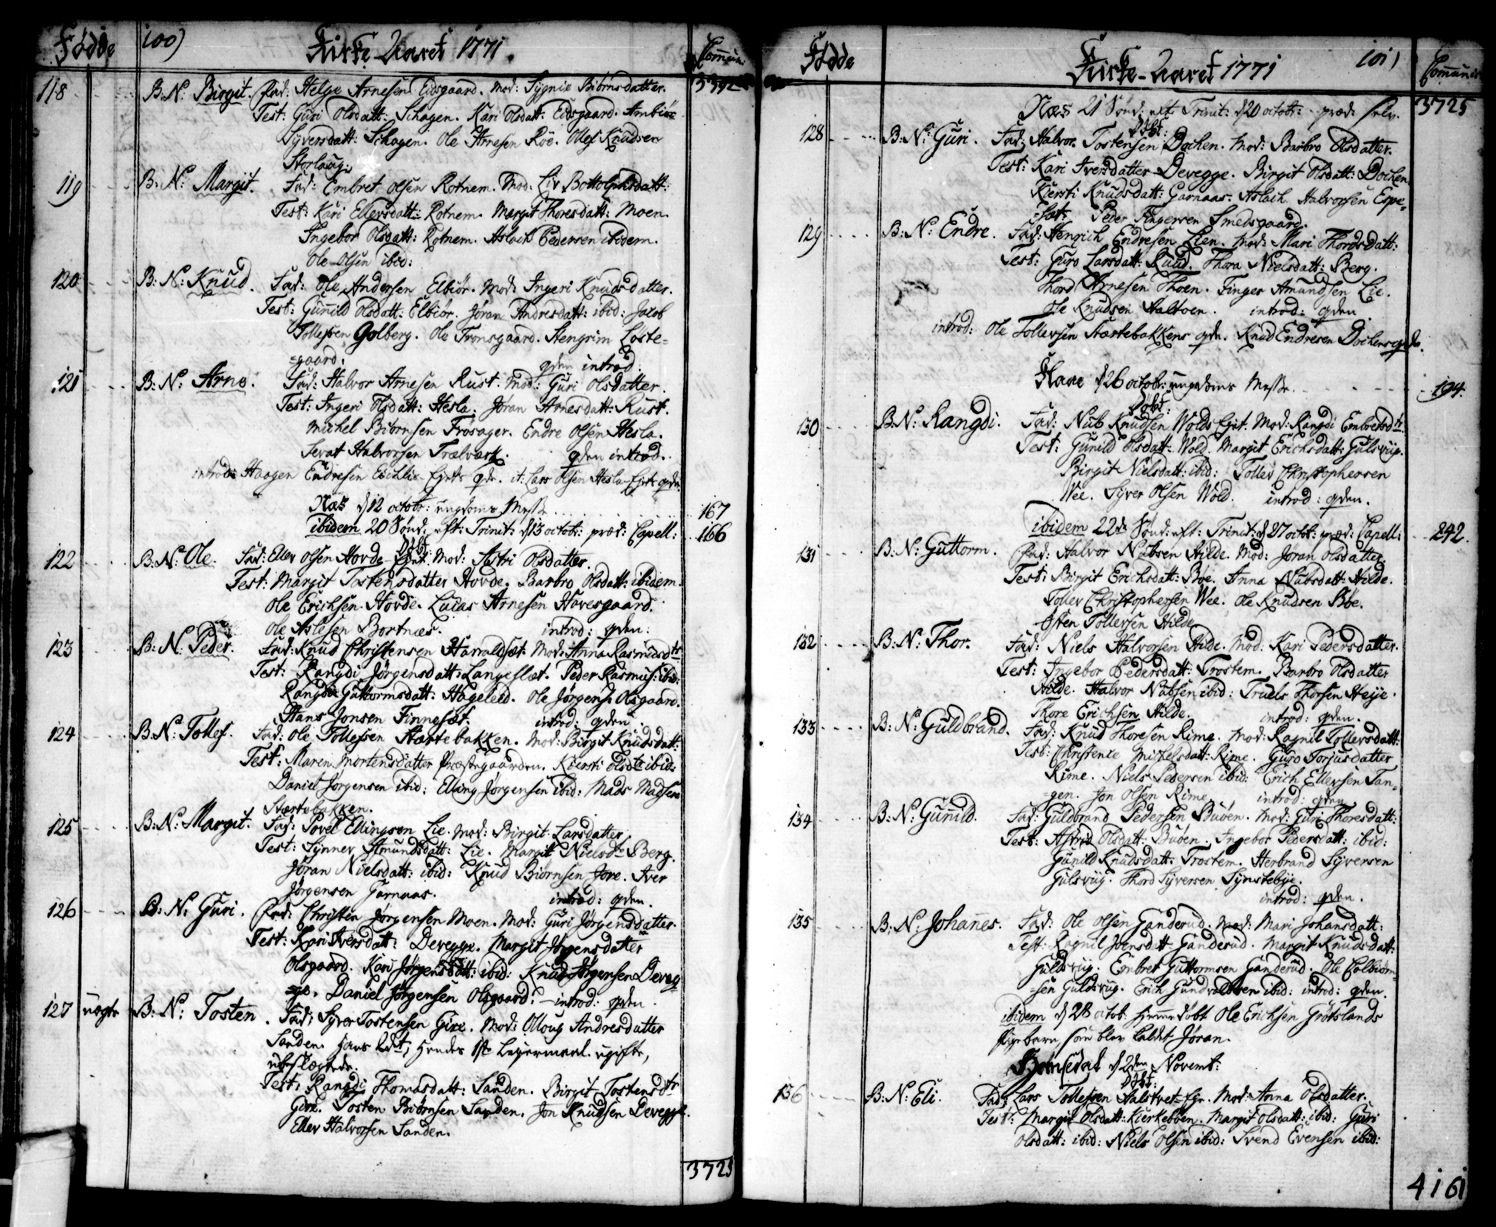 Fødde
100)
Kirke-Aaret 1771.
Comun:
3392
118 B: N: Birgit. Fad: Helge Arnesen Eidsgaard. Mod: Sygnie Biørnsdatter.
Test: Guri Olsdatt: Schagen. Kari Olsdatt: Eidsgaard. Ambiør
Syversdatt: Schagen. Ole Arnesen Röe. Ollef Knudsen
Storlaug:
119 B: N: Margit. Fad: Embret Olsen Rotnem. Mod: Liv Bottolphsdatt:
Test: Kari Ellersdatt: Rotnem. Margit Thoresdatt: Moen.
Ingebor Olsdatt: Rotnem. Aslach Pedersen ibidem.
Ole Olsen ibid:
120 B: N: Knud. Fad: Ole Andersen Elbiör. Mod: Ingeri Knudsdatter.
Test: Gunild Olsdatt: Elbiör. Jøran Andresdatt: ibid: Jacob
Tollefsen Golberg. Ole Tronsgaard. Stengrim Loste-
gaard. qden introd:
121 B: N: Arne. Fad: Halvor Arnesen Rust. Mod: Guri Olsdatter.
Test: Ingeri Olsdatt: Hesla. Jøran Arnesdatt: Rust.
Michel Biörnsen Frøsager. Endre Olsen Hesla.
Sevat Halvorsen Trælvark: qden introd.
introd: Haagen Endresen Eichlie Egte qv. it: Lars Olsen Hesla Egte qvden
Næs d 12 octobr: ungdoms Messe 167
ibidem 20 Sönd: eft: Trinit: d 13 octob: præd: Capell: 166
döbt:
122 B: N: Ole. Fad: Eller Olsen Hovde Egnt. Mod: Astri Olsdatter.
Test: Margit Tostensdatter Hovde, Barbro Olsdatt: ibidem.
Ole Erichsen Hovde. Lucas Arnesen Hovesgaard.
Ole Aslesen Bortnæs. introd: qden:
123 B: N: Peder. Fad: Knud Christensen Haraldset. Mod: Anna Rasmusdtr
Test: Rangdi Jørgensdatt: Langeslet. Peder Rasmus: ibid:
Rangdi Guttormsdatt: Hageleed. Ole Jørgens: Olsgaard.
Hans Jonsen Finneset. introd: qden:
124 B: N: Tollef. Fad: Ole Tollefsen Stærtebakken. Mod: Birgit Knudsdatt:
Test: Maren Mortensdatter Præstegaarden. Kiersti Olsdtr ibid:
Daniel Jørgensen ibid: Elling Jørgensen ibid: Mads Madsen
Stærtebakken.
125 B: N: Margit. Fad: Povel Ellingsen Lie. Mod: Birgit Larsdatter
Test: Synnev Amundsdatt: Lie. Margit Nielsd: Berg.
Jöran Nielsdatt: ibid: Knud Biörnsen Jore. Iver
Jørgensen Garnaas. introd: qden.
126 B: N: Guri. Fad: Christen Jørgensen Moen. Mod: Guri Jørgensdatter.
Test: Kari Iversdatt: Devegge. Margit Jørgensdatter
Olsgaard. Kari Jørgensdatt: ibid: Knud Jørgensen Deveg-
ge. Daniel Jørgensen Olsgaard: introd: qden.
127 uægte B: N: Tosten. Fad: Syver Tostensen Gire. Mod: Olloug Andresdatter
Sanden. hans 2det, hendes 1ste Leyermaal. ugifte,
ubeslægtede.
Test: Rangdi Thomasdatt: Sanden. Birgit Tostensdtr
Gire. Tosten Biörnsen Sanden. Jon Knudsen Devegge.
Eller Halvorsen Sanden.
3725
Fødde
Kirke-Aaret 1771
101)
Comunic:
Næs 21 Sönd: eft: Trinit: d 20 octob: præd: selv. 3725
döbt:
128 B: N: Guri. Fad: Halvor Tostensen Dochen. Mod: Barbro Olsdatter.
Test: Kari Iversdatter Devegge. Birgit Olsdatt: Dochen
Kiersti Knudsdatt: Garnaas. Aslach Halvorsen Espe-
set. Peder Smedsgaard.
129 B: N: Endre. Fad: Henrich Endresen Elen. Mod: Mari Thordsdatt:
Test: Guro Larsdatt: Ruud. Thora Nielsdatt: Berg.
Thord Arnesen Thoen. Finger Amundsen Lie.
Ole Knudsen Halvoen. introd: qden
introd: Ole Tollevsen Stærtebakkens qden. Knud Endresen Dochens qvde.
Flaae d 26 octob: ungdoms Messe. 194.
döbt:
130 B: N: Rangdi. Fad: Nub Knudsen Wolds Egnt. Mod: Rangdi Embretsdtr.
Test: Gunild Olsdatt: Wold. Margit Erichsdatt: Gulsviig.
Birgit Nielsdatt: ibid: Tollev Christophersen
Wee. Syver Olsen Wold. introd: qden.
ibidem 22de Sönd: eft: Trinit: d 27 octob: præd: Capell: 242
131 B: N: Guttorm. Fad: Halvor Nubsen Hilde. Mod: Jøran Olsdatter
Test: Birgit Erichsdatt: Bøe. Anna Nubsdatt: Hilde.
Tollev Christophersen Wee. Ole Knudsen Böe.
Østen Tollevsen Hilde
132 B: N: Thor. Fad: Niels Halvorsen Hilde. Mod: Kari Pedersdatter.
Test: Ingebor Pedersdatt: Trostem. Barbro Olsdatter
Hilde. Halvor Nubsen ibid: Truels Thorsen Heije.
Thore Erichsen Hilde. introd: qden.
133 B: N: Guldbrand. Fad: Knud Thoresen Rime. Mod: Ragnil Tollevsdatt:
Test: Christence Michelsdat: Rime. Guro Torsusdatter
Rime. Niels Pedersen ibid: Erich Ellevsen Tan-
gen. Jon Olsen Rime. introd: qden
134 B: N: Gunild. Fad: Guldbrand Pedersen Buben. Mod: Guri Thoresdatt:
Test: Astrid Olsdatt: Buben. Ingebor Pedersdatt: ibid:
Gunild Knudsdatt: Trostem. Herbrand Syversen
Gulsviig. Thord Syversen Synstebye.
introd: qden.
135 B: N: Johanes. Fad: Ole Olsen Ganderud. Mod: Mari Johansdatt:
Test: Ragnil Joensdatt Ganderud. Margit Knudsdatt:
Gulsviig. Embret Guttormsen Ganderud. Ole Colbiörn-
sen Gulsviig. Erik Gundvaldsen ibid: introd: qden.
ibidem d 28 octob: hiemedöbt Ole Erichsen Grötslands
Pigebarn, som blev kaldet Jøran.
Hemsedal d 2den Novemb:
döbt:
136 B: N: Eli. Fad: Lars Tollefsen Halstvet Egn. Mod: Anna Olsdatter.
Test: Margit Olsdatt: Kierkebøen. Margit Olsdatt: ibid: Guri
Olsdatt: ibid: Niels Olsen ibid: Svend Evensen ibid:
4161